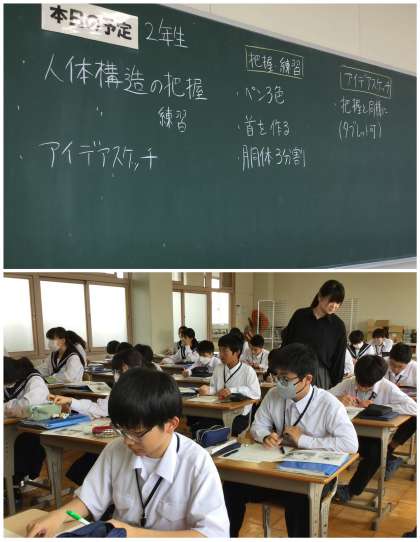 本日の予定
2年生
・人体構造の把握
・ 〃 練習
・アイデアスケッチ
把握練習
・ペン3色
・首を作る
・胴体3分割
アイデアスケッチ
・把握と同様に
(タブレット可)